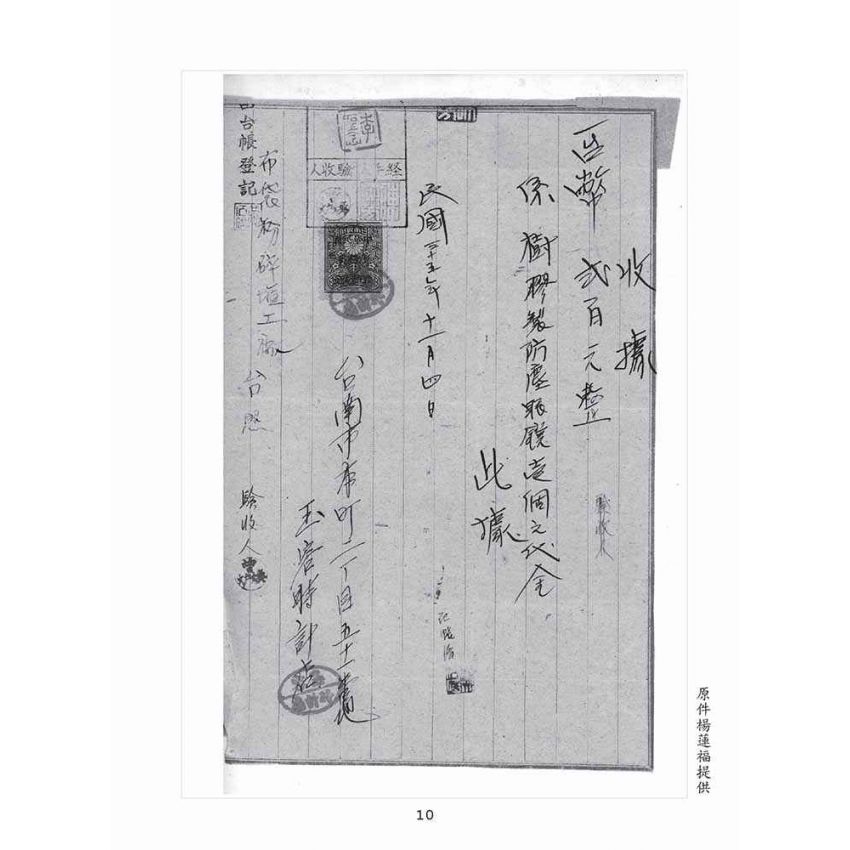 收據
台幣 弍百元整
驗收人
係樹膠製防塵眼鏡壱個之代金
此據
民國三十五年十一月四日
台南市本町二丁目五十一番
玉容時計店
経手人 驗收人
布袋粉碎塩工廠 台照
驗收人
台帳登記
原件楊蓮福提供
10